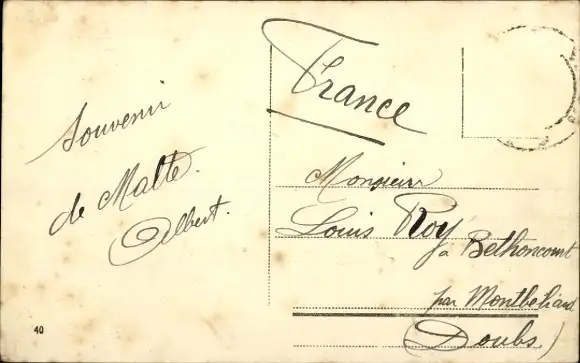 Souvenir
de Malte.
Albert.
40
France
Monsieur
Louis Roy
à Bethoncourt
par Montbeliard
(Doubs)